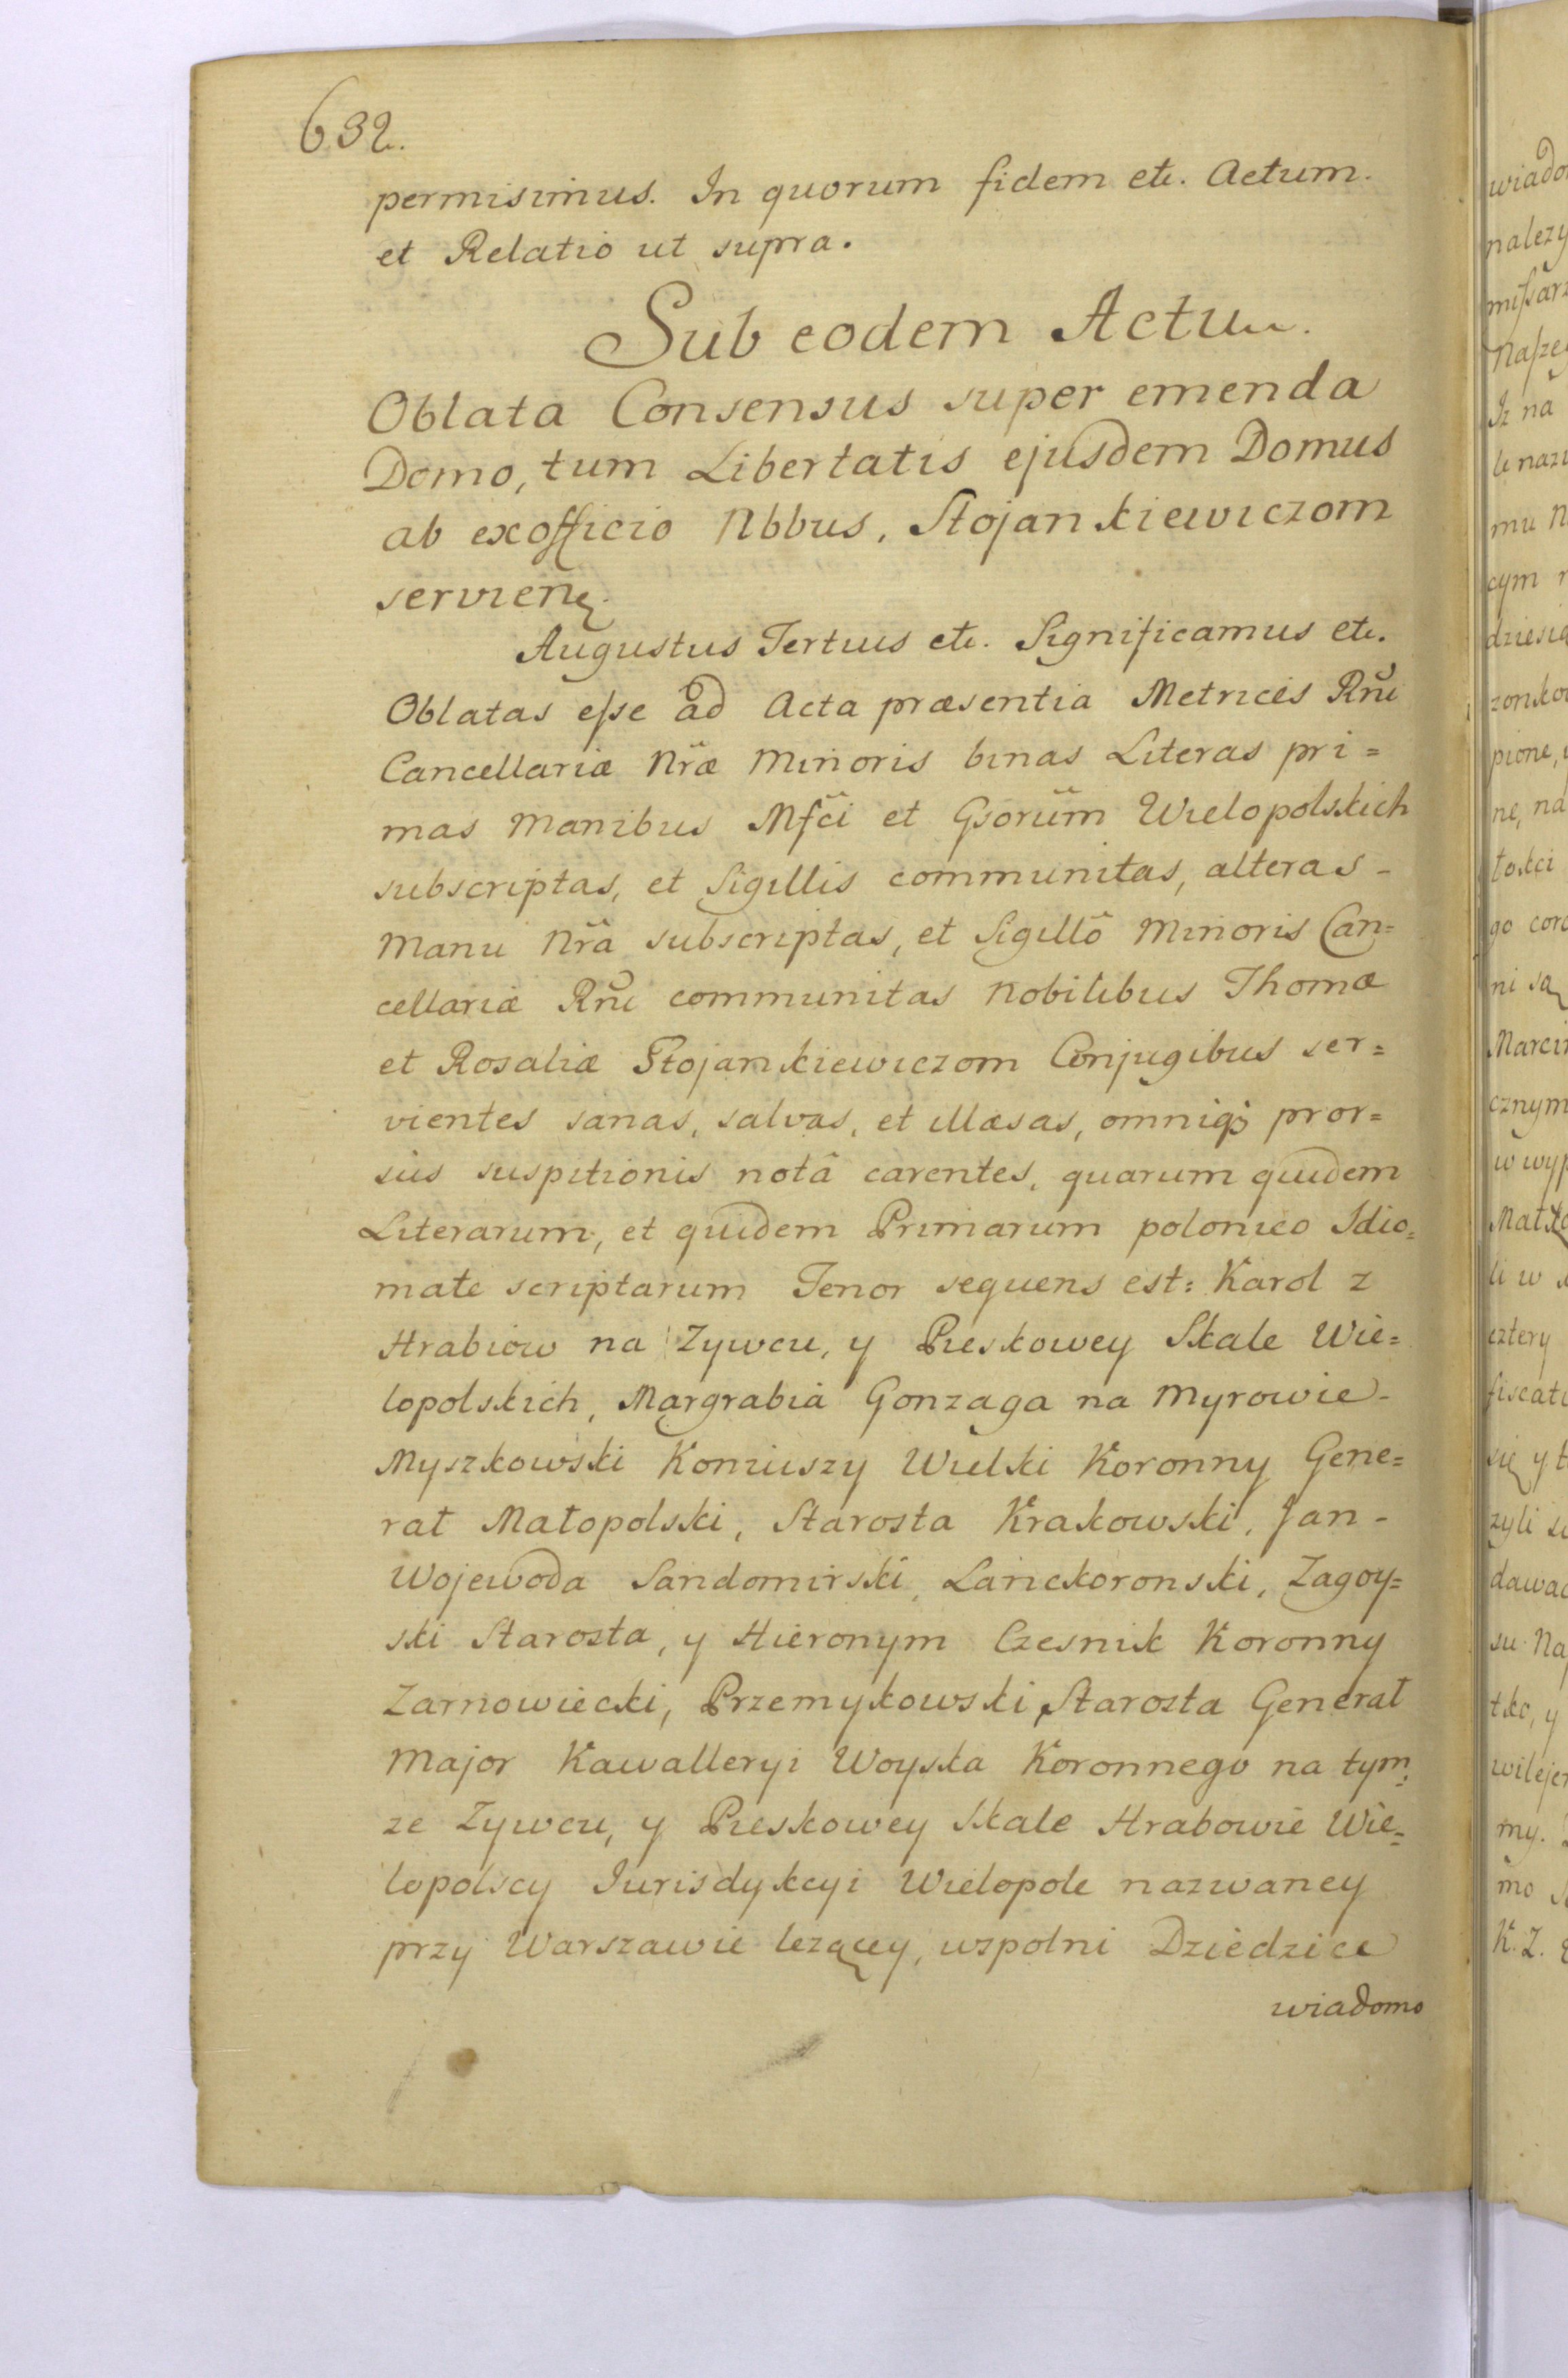 632.
permisimus. In quorum fidem etc. Actum.
et Relatio ut supra.
Sub eodem Actu
Oblata Consensus super emenda
Domo, tum Libertatis ejusdem Domus
ab exofficio Nbbus, Stojankiewiczom
servien.
Augustus Tertius etc. Significamus etc.
Oblatas esse ad Acta præsentia Metrices Rñi
Cancellariæ Nr̃æ Minoris binas Literas pri=
mas Manibus Mfc̃i et Gsorum̃ Wielopolskich
subscriptas, et Sigillis communitas, alteras-
Manu Nr̃a subscriptas, et Sigillô Minoris Can=
cellariæ Rñi communitas Nobilibus Thomæ
et Rosaliæ Stojankiewiczom Conjugibus ser=
vientes sanas, salvas, et illæsas, omniq; pror=
sus suspitionis notâ carentes, quarum quidem
Literarum, et quidem Primarum polonico Idio=
mate scriptarum Tenor sequens est: Karol z
Hrabiow na Zywcu, y Pieskowey Skale Wie=
lopolskich, Margrabia Gonzaga na Myrowie-
Myszkowski Koniuszy Wielki Koronny Gene=
rał Małopolski, Starosta Krakowski, Jan-
Wojewoda Sandomirski, Lanckoronski, Zagoy=
ski Starosta, y Hieronym Czesnik Koronny
Zarnowiecki, Przemykowski, Starosta Generał
Major Kawalleryi Woyska Koronnego na tym=
ze Zywcu, y Pieskowey Skale Hrabowie Wie=
lopolscy Jurisdykcyi Wielopole nazwaney
przy Warszawie lezącey, wspolni Dziedzice
wiadomo